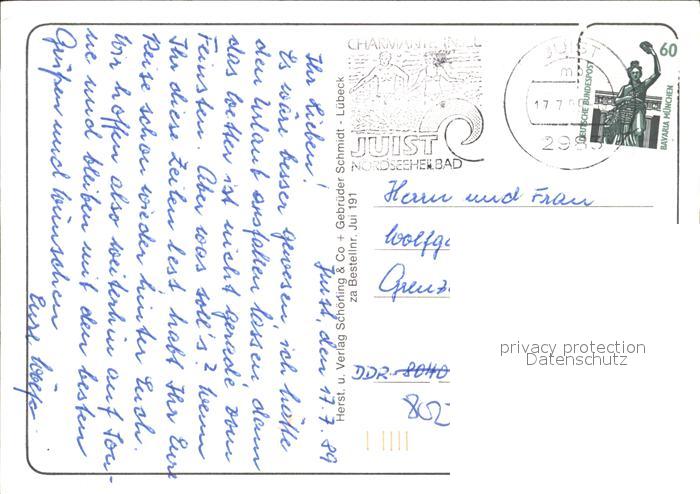 Juist, den 17.7.89
Ihr Lieben!
Es wäre besser gewesen, ich hätte
den Urlaub ausfallen lassen, denn
das Wetter ist nicht gerade vom
Feinsten. Aber was soll's? Wenn
Ihr diese Zeilen lest habt Ihr Eure
Reise schon wieder hinter Euch.
Wir hoffen also weiterhin auf Son-
ne und bleiben mit den besten
Grüßen und Wünschen
Eure
Herst. u. Verlag Schöning & Co + Gebrüder Schmidt - Lübeck
za Bestellnr. Jui 191
CHARMANTE INSEL
JUIST
NORDSEEHEILBAD
JUIST
17.7.
298
60
DEUTSCHE BUNDESPOST
BAVARIA MÜNCHEN
Herrn und Frau
Wolfg
Grenz
DDR-8040
802
privacy protection
Datenschutz